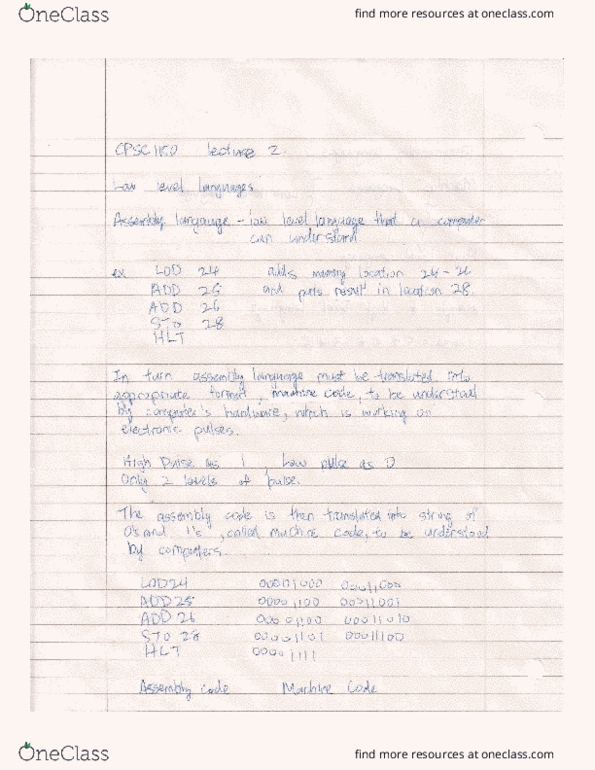 OneClass
find more resources at oneclass.com
CPSC 1150 Lecture 2.
Low level languages
Assembly language - low level language that a computer
can understand
ex LOD 24 adds memory location 24-26
ADD 25 and puts result in location 28.
ADD 26
STO 28
HLT
In turn assembly language must be translated into
appropriate format, machine code, to be understood
by computer's hardware, which is working on
electronic pulses.
High Pulse as 1, Low pulse as 0
Only 2 levels of pulse.
The assembly code is then translated into string of
0s and 1's, called machine code, to be understood
by computers.
LOD 24 00011000
ADD 25 00001100 00011001
ADD 26 00001100 00011010
STO 28 00001101 00011100
HLT 00001111
Assembly code Machine Code
OneClass
find more resources at oneclass.com